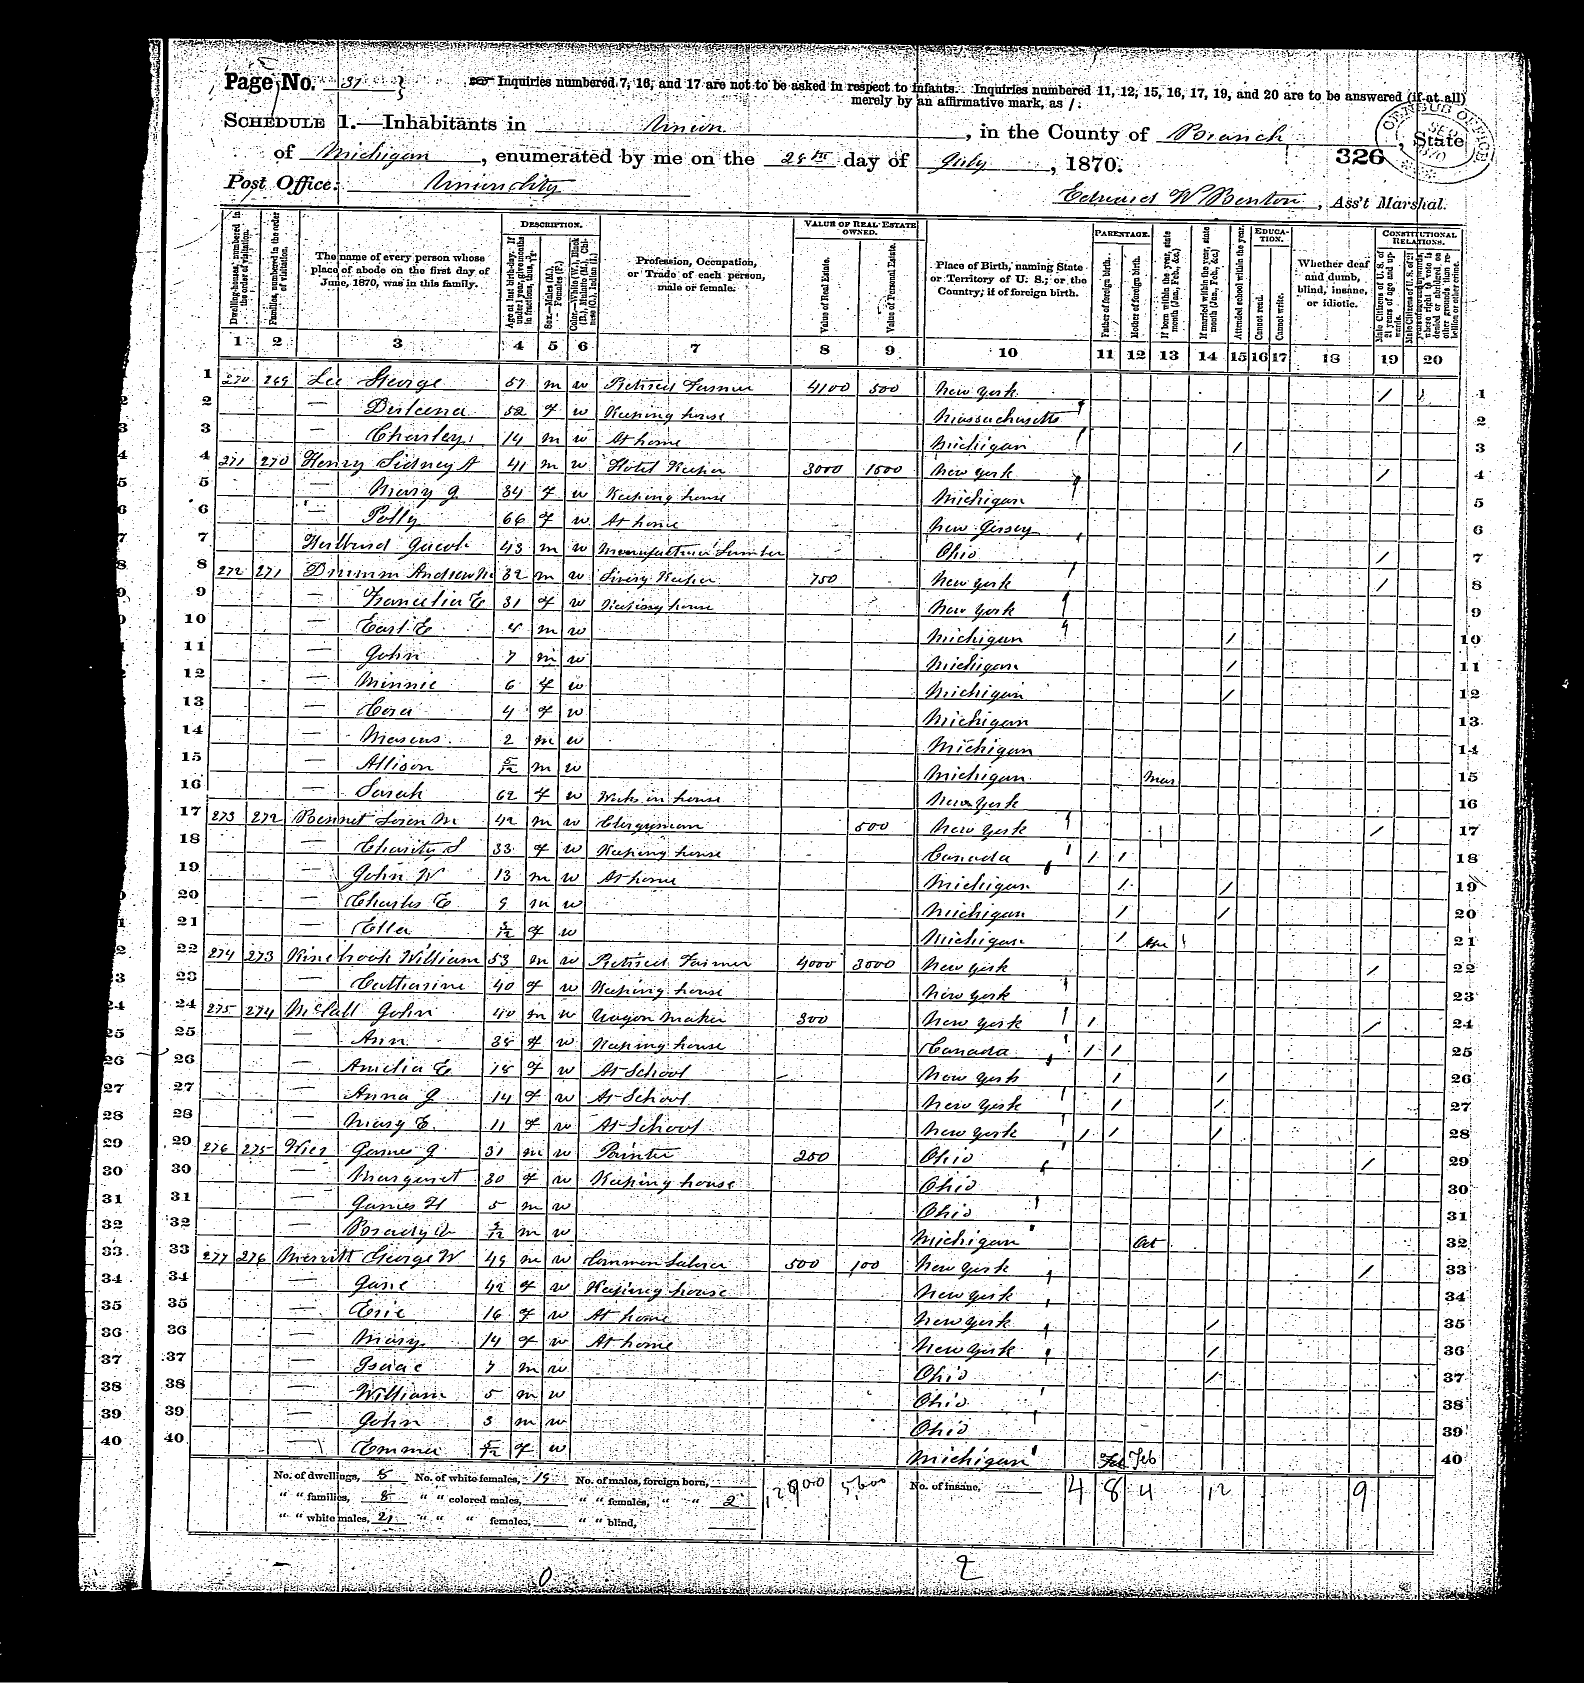 Page No. 31
Inquiries numbered 7, 16, and 17 are not to be asked in respect to infants. Inquiries numbered 11, 12, 15, 16, 17, 19, and 20 are to be answered (if at all)
merely by an affirmative mark, as /.
SCHEDULE 1.—Inhabitants in Union, in the County of Branch, State
of Michigan, enumerated by me on the day of July, 1870.
326
Post Office: Union City
Edward W Benton, Ass't Marshal.
DESCRIPTION. VALUE OF REAL ESTATE OWNED. PARENTAGE. EDUCATION. CONSTITUTIONAL RELATIONS.
Dwelling-houses, numbered in the order of visitation. Families, numbered in the order of visitation. The name of every person whose place of abode on the first day of June, 1870, was in this family. Profession, Occupation, or Trade of each person, male or female. Value of Real Estate. Value of Personal Estate. Place of Birth, naming State or Territory of U. S.; or the Country, if of foreign birth. Father of foreign birth. Mother of foreign birth. Attended school within the year. Cannot read. Cannot write. Whether deaf and dumb, blind, insane, or idiotic.
1 2 3 4 5 6 7 8 9 10 11 12 13 14 15 16 17 18 19 20
1 270 269 Lee George 57 m w Retired Farmer 4100 500 New York / 1
2 — 52 f w Keeping house Massachusetts 2
3 — Charley 14 m w At home Michigan / 3
4 271 270 Henry Sidney A 41 m w Hotel Keeper 3000 1500 New York / 4
5 — Mary J 34 f w Keeping house Michigan 5
6 — Polly 66 f w At home New Jersey 6
7 Jacob 43 m w Lumber Ohio / 7
8 272 271 Drumm Andrew 32 m w Livery Keeper 750 New York / 8
9 — Francelia E 31 f w Keeping house New York 9
10 — Earl E m w Michigan / 10
11 — John 7 m w Michigan / 11
12 — Minnie 6 f w Michigan / 12
13 — Cora 4 f w Michigan 13
14 — 2 m w Michigan 14
15 — Allison 5/12 m w Michigan Mar 15
16 — Sarah 62 f w Works in house New York 16
17 273 272 Bennet Loren M 42 m w Clergyman 500 New York / 17
18 — Charity S 33 f w Keeping house Canada / / 18
19 — John W 13 m w At home Michigan / / 19
20 — Charles E 9 m w Michigan / / 20
21 — Etta f w Michigan / Apr 21
22 274 273 William 53 m w Retired Farmer 4000 3000 New York / 22
23 — Catharine 40 f w Keeping house New York 23
24 275 274 McCall John 40 m w Wagon Maker 300 New York / / 24
25 — Ann 38 f w Keeping house Canada / / 25
26 — Amelia E f w At School New York / / 26
27 — Anna J 14 f w At School New York / / 27
28 — Mary E. 11 f w At School New York / / / 28
29 276 275 Wier James J 31 m w Painter 200 Ohio / 29
30 — Margaret 30 f w Keeping house Ohio 30
31 — James H 5 m w Ohio 31
32 — m w Michigan Oct 32
33 277 276 Merritt George W 49 m w Common Laborer 500 100 New York / 33
34 — Jane 42 f w Keeping house New York 34
35 — 16 f w At home New York / 35
36 — Mary 14 f w At home New York / 36
37 — Isaac 7 m w Ohio / 37
38 — William 5 m w Ohio 38
39 — John 3 m w Ohio 39
40 — Emmer f w Michigan Feb 40
No. of dwellings, 8 No. of white females, 19 No. of males, foreign born, No. of insane, 4 8 4 12 9
" " families, 8 " " colored males, " " females, " " 2
" " white males, 21 " " " females, " " blind,